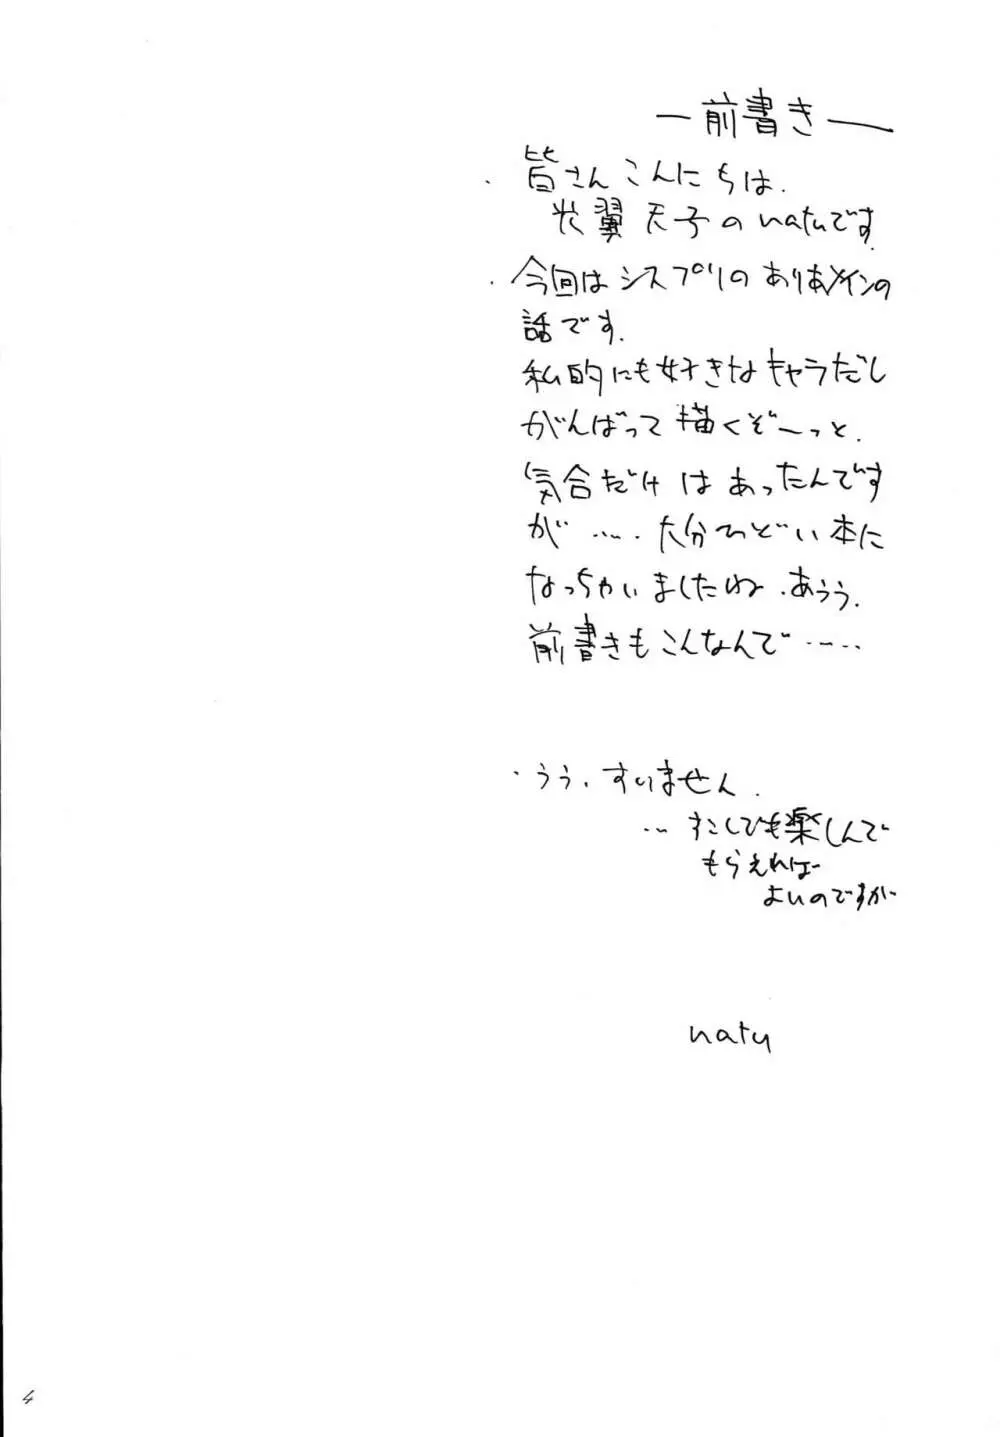 ―前書き―
・皆さんこんにちは.
光翼天子のnatuです.
・今回はシスプリのありあメインの
話です.
私的にも好きなキャラだし
がんばって描くぞーっと.
気合だけはあったんです
が……大分ひどい本に
なっちゃいましたね.あうう.
前書きもこんなんで……
・うう.すいません.
…すこしでも楽しんで
もらえれば
よいのですが
natu
4